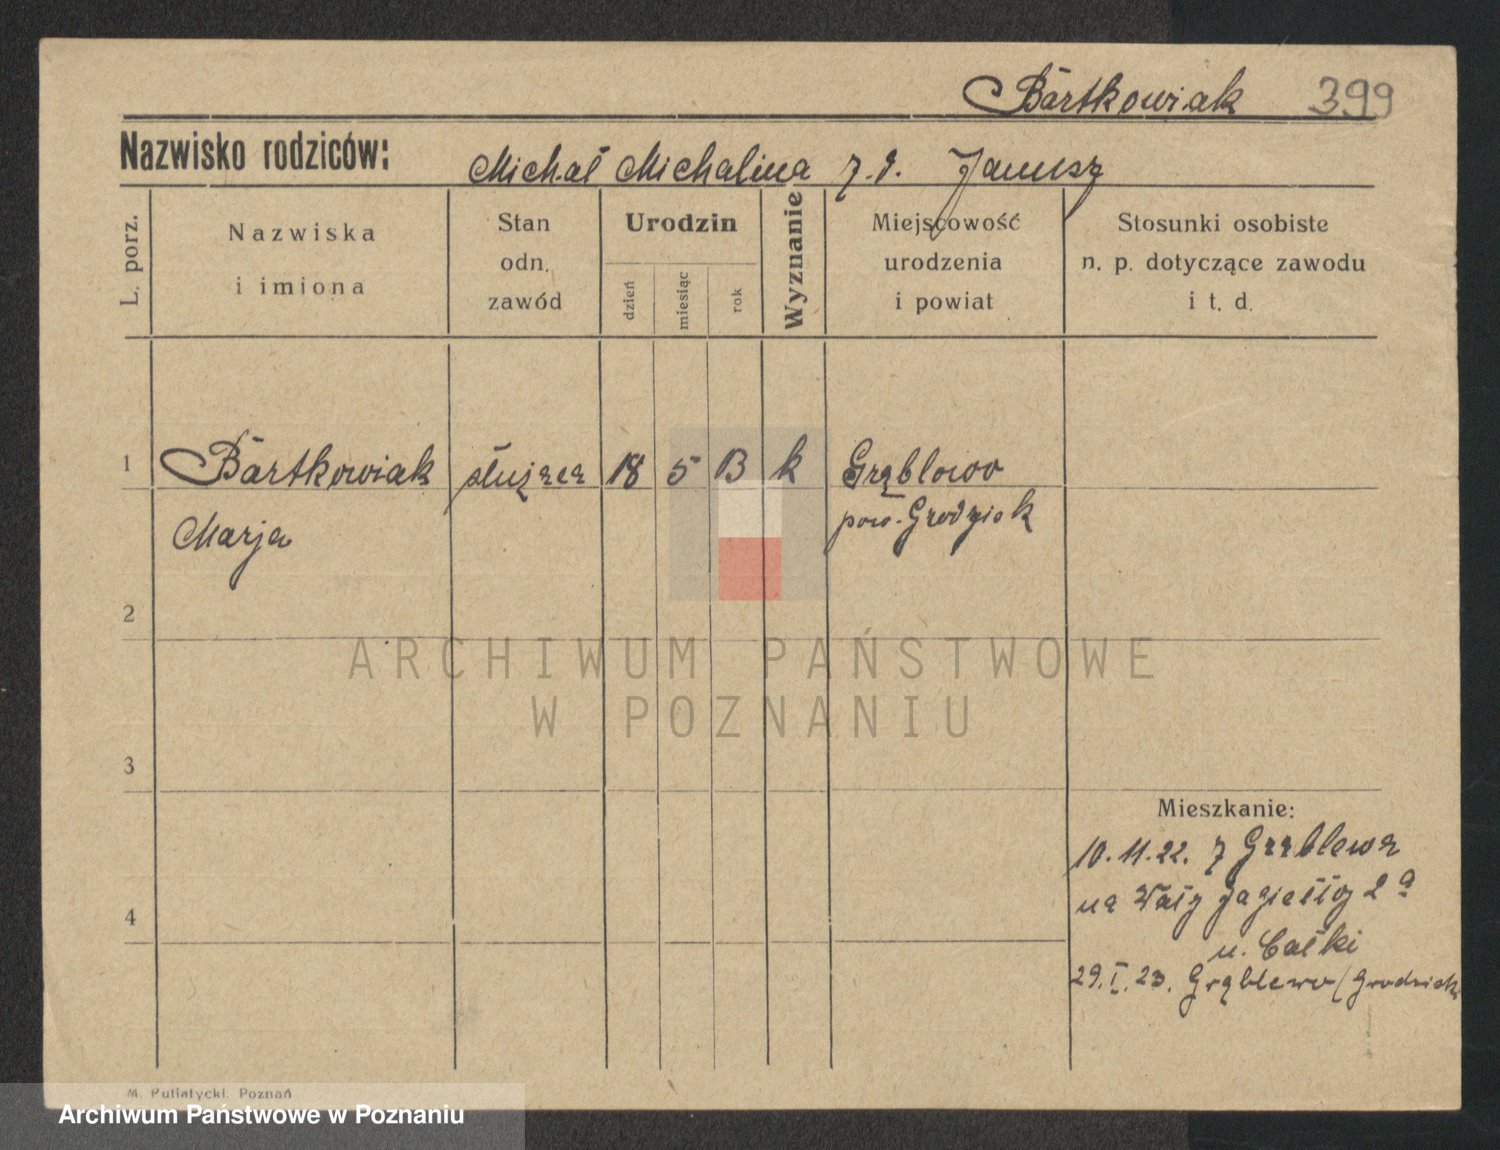 Bartkowiak 399
Nazwisko rodziców:
Michał Michalina z. d. Janusz
L. porz.
Nazwiska
i imiona
Stan
odn.
zawód
Urodzin
dzień
miesiąc
rok
Wyznanie
Miejscowość
urodzenia
i powiat
Stosunki osobiste
n. p. dotyczące zawodu
i t. d.
1 Bartkowiak służąca 18 5 k Grąblewo
Marja pow. Grodzisk
2
3
4
Mieszkanie:
10.11.22. z Grąblewa
na Wały Jagiełły 2a
u. Całki
29.I.23. Grąblewo / Grodzisk
M. Putiatycki, Poznań
ARCHIWUM PAŃSTWOWE
W POZNANIU
Archiwum Państwowe w Poznaniu